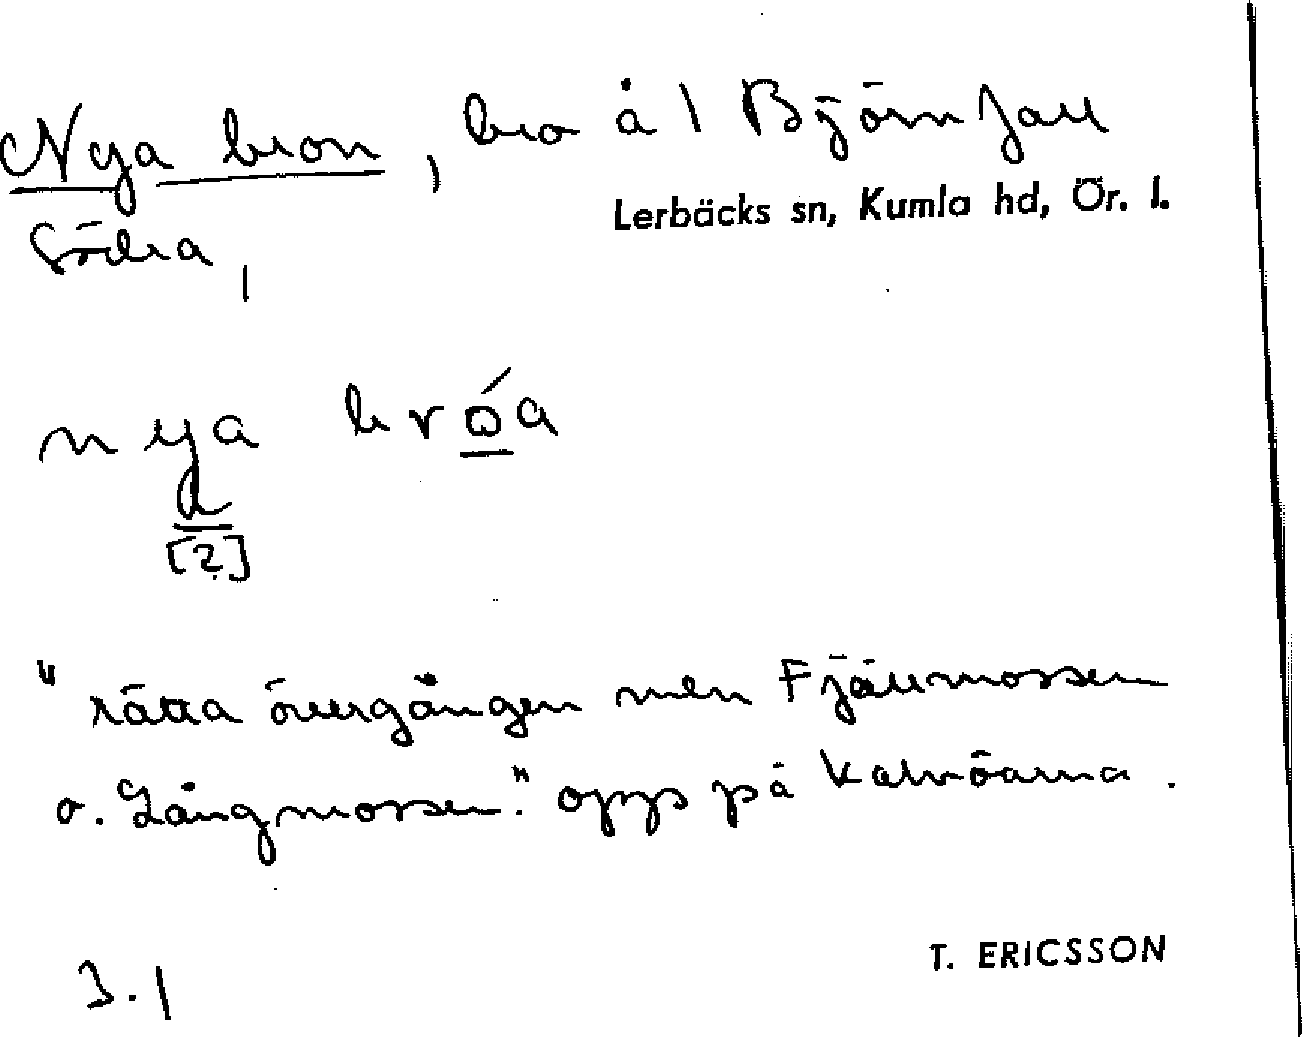 Nya bron, bro å 1 Björnfall
Södra,
Lerbäcks sn, Kumla hd, Ör. l.
nya bróa
[?]
"rätta övergången mln Fjällmossen
o. Långmossen." opp på Kalvöarna.
3.1
T. ERICSSON